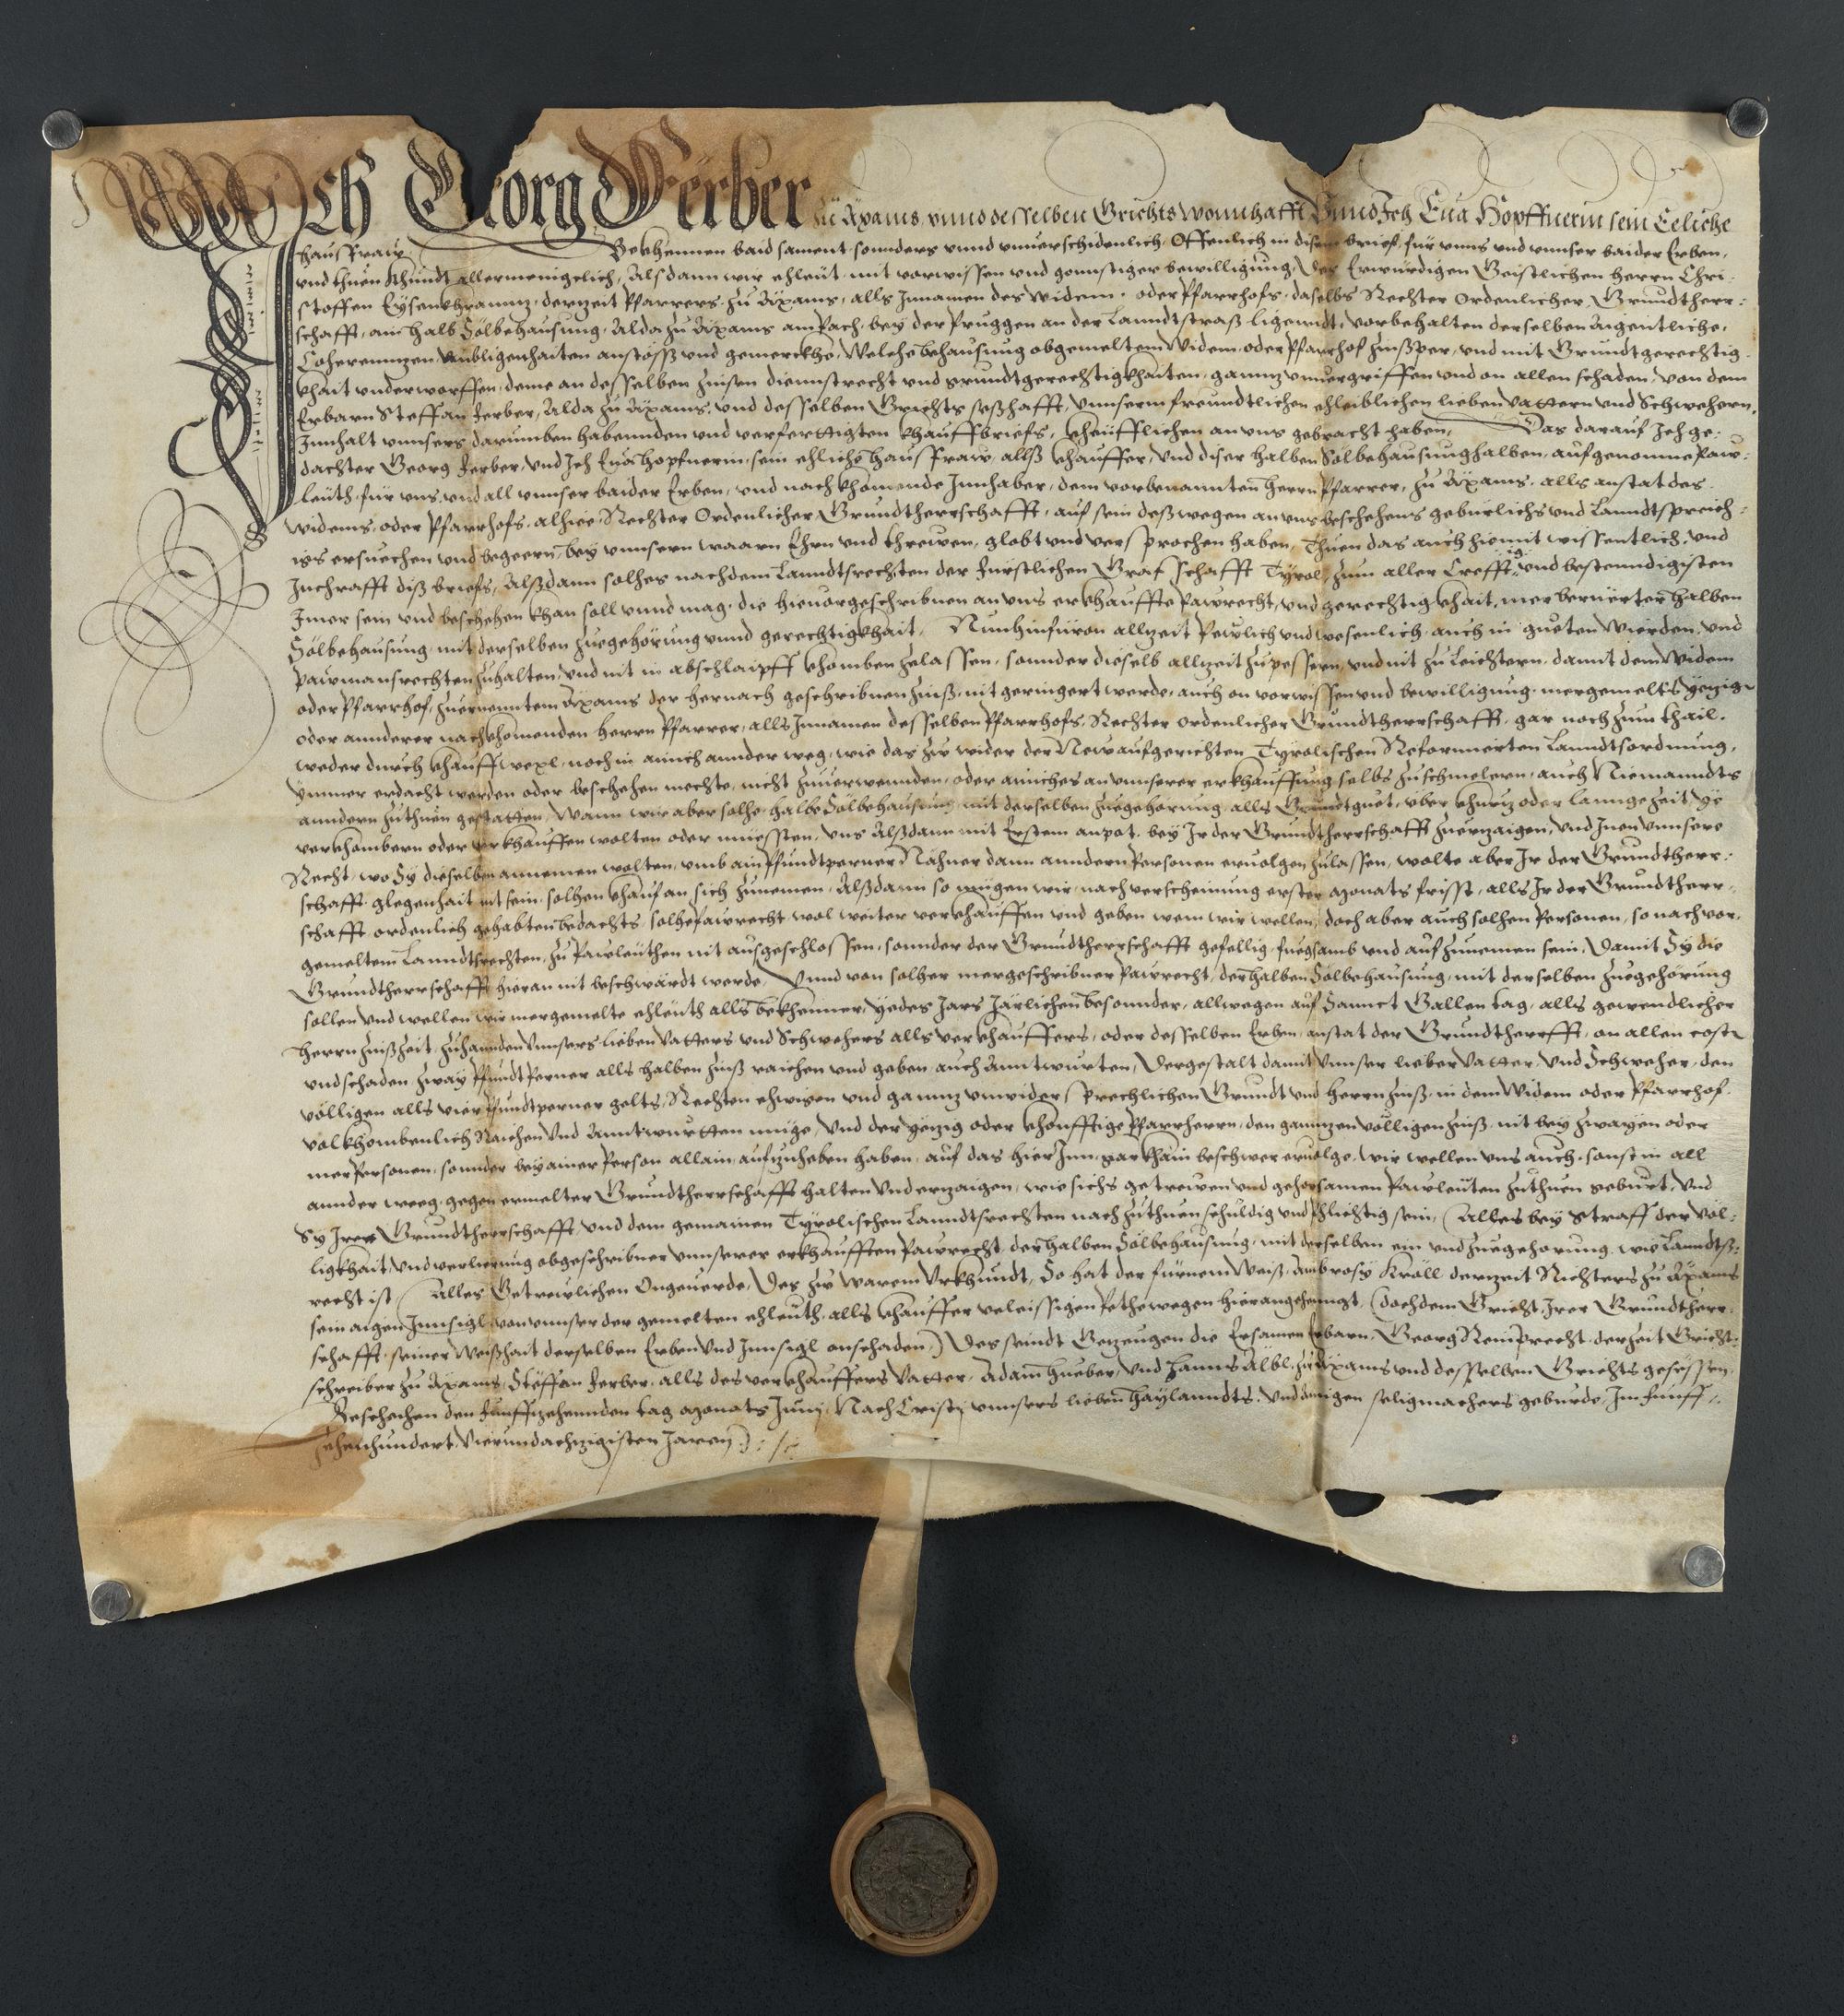 Ich Georg Ferber zu Axams, unnd desselben Grichts wonnhafft Unnd Ich Eua Hopffnerin sein Eeliche
haus fraw Bekhennen baid sament sonnders unnd unuerschidenlich, Offentlich in disem brief, für unns und unnser baider Erben,
und thuen khundt allermenigclich, Als dann wir ehleüt mit vorwissen und gonnstiger bewilligung, Des Erwürdigen Geistlichen herrn Chri-
stoffen Eysenkhrammz, derzeit Pfarrers zu Axams, alls Innamen des Widem, oder Pfarrhofs, daselbs Rechter Ordenlicher Grundtherr-
schafft, ain halb Sölbehausung, Alda zu Axams am Pach, bey der Pruggen an der Lanndtstraß ligenndt, vorbehalten derselben Aigentliche,
Coherennzen umbligenhaiten anstöss und gemerckhe, Welche behausung obgemeltem Widem, oder Pfarrhof zinßper, und mit Grundtgerechtig-
khait underworffen, deme an desselben zinsen diennstrecht und grundtgerechtigkhaiten, gannz unuergriffen und on allen schaden, von dem
Erbarn Steffan Ferber, Alda zu Axams, und desselben Grichts seßhafft, unnserm freundtlichen ehleiblichen lieben vattern und Schwehern,
Innhalt unnsers darumben habennden und verfertigten khauffbriefs, kheufflichen an uns gebracht haben, Das darauf Ich ge-
dachter Georg Ferber, und Ich Eua Hopfnerin, sein ehliche hausfraw, allß khauffer, und diser halben Sölbehausung halben, aufgenomne Paw-
leuth, für uns, und all unnser baider Erben, und nachkhomende Innhaber, dem vorbenannten herrn Pfarrer, zu Axams, alls anstat des
Widems, oder Pfarrhofs, alhier Rechter Ordenlicher Grundtherrschafft, auf sein deßwegen an uns beschehens gebürlichs und Lanndtspreich-
igs ersuechen und begeern, bey unnsern waarn Ehrn und threwen, globt und versprochen haben, Thuen das auch hiemit wissentlich, und
Inchrafft diß briefs, Alßdann solhes nach dem Lanndtsrechten der Fürstlichen Grafschafft Tyrol, zum aller Crefftig- und bestenndigisten
Imer sein und beschehen khan soll unnd mag, die hieuorgeschribnen an uns erkhauffte Pawrecht, und gerechtigkhait, merberuerter halben
Sölbehausung, mit derselben zuegehörung unnd gerechtigkhait, Nun hinfüron allzeit Pewlich und wesenlich, auch in gueten Wierden, und
Pawmansrechten zuhalten, und nit in abschlaipff khomben zelassen, sonnder dieselb allzeit zu pessern, und nit zu Leichtern, damit dem Widem
oder Pfarrhof, zuernenntem Axams der hernach geschribnen zinß, nit geringert werde, auch on vorwissen und bewilligung, mergemelts yezig-
oder annderer nachkhomenden herrn Pfarrer, alls Innamen desselben Pfarrhofs, Rechter ordenlicher Grundtherrschafft, gar noch zum thail,
weder durch khauff wexl, noch in ainich annder weg, wie das zw wider der New aufgerichten Tyrolischen Reformierten Lanndtsordnung,
ymmer erdacht werden oder beschehen mechte, nicht zuuerwennden, oder ainiches an unnserer erkhauffung selbs zuschmelern, auch Niemanndts
anndern zuthuen gestatten, Wann wir aber solhe halbe Sölbehausung mit derselben zuegehörung, alls Grundtguet, über khurz oder lannge Zeit, ye
verkhombern oder verkhauffen wolten oder muessten, uns alßdann mit Erstem anpot, bey Ir der Grundtherrschafft zuerzaigen, und Inen unnsere
Recht, wo Sy dieselben annemen wolten, umb ain Pfundt perner Nähner dann anndern Personen eruolgen zulassen, wolte aber Ir der Grundtherr-
schafft, glegenhait nit sein, solhen khauf an sich zunemen, Alßdann so mügen wir, nach verscheinung erster Monats frisst, alls Ir der Grundtherr-
schafft, ordenlich gehabten bedachts, solhe Pawrecht, wol weiter verkhauffen und geben wem wir wellen, doch aber auch solhen Personen, so nach vor-
gemeltem Lanndtsrechten, zu Pawleuthen nit ausgeschlossen, sonnder der Grundtherrschafft gefellig, fuegsamb und aufzunemen sein, Damit Sy die
Grundtherrschafft hieran nit beschwärdt werde, Unnd von solher mergeschribner Pawrecht, der halben Sölbehausung, mit derselben zuegehörung
sollen und wellen wir mergemelte ehleuth alls bekhenner, yedes Jars Järlichen besonnder, allwegen auf Sannct Gallen tag, alls gewendlicher
herrn zinßzeit, zuhannden unnsers lieben Vatters und Schwehers alls verkhauffers, oder desselben Erben, anstat der Grundtherrfft, on allen cost-
und schaden zway Pfundt Perner alls halben zinß raichen und geben auch Anntwurten, Dergestalt damit Unnser lieber Vatter, Und Schweher, den
völligen alls vier Pfundt perner gelts, Rechten ehwigen und gannz unwidersprechlichen Grundt und herrn zinß, in dem Widem oder Pfarrhof
volkhombenlich Raichen Und Anntwurten müge, Und der yezig oder khonfftige Pfarrherrn, den gannzen völligen zinß, nit bey zwayen oder
mer Personen, sonnder bey ainer Person allain aufzuheben haben, auf das hier Inn, gar khain beschwer eruolge, Wir wellen uns auch, sonst in all
annder weeg, gegen ermelter Grundtherrschafft halten Und erzaigen, wie sichs getrewen und gehorsamen Pawleuten zuthuen gebürt, Und
Sy Irer Grundtherrschafft, und dem gemainen Tyrolischen Lanndtsrechten nach zuthuen schuldig und phlichtig sein, (Alles bey Straff der Völ-
ligkhait, Und verlierung obgeschribner unnserer erkhaufften Pawrecht, der halben Sölbehausung, mit derselben ein und zuegehörung, wie Lanndtß-
recht ist, (Alles Getrewlichen Ongeuerde, Des zw warem Urkhundt, So hat der fürnem Weiß, Ambrosy Kröll derzeit Richters zu Axams
sein aigen Innsigl, von unnser der gemelten ehleuth, alls khauffer veleissigen Pethwegen hieran gehenngt, (doch dem Gricht, Irer Grundtherr-
schafft, seiner Weißhait derselben Erben Und Innsigl onschaden,) Des seindt Gezeugen die Ersamen Erbarn, Georg Remprecht, derzeit Gricht-
schreiber zu Axams, Steffan Ferber, alls des verkhauffers Vatter, Adam Hueber, und Hanns Älbl, zu Axams und desselben Grichts gesessen,
Beschehen den Funffzehennden tag Monats Juny, Nach Cristi unnsers lieben haylanndts, und ainigen seligmachers geburde, Im funff-
zehenhundert, Vierundachzigisten Jaren